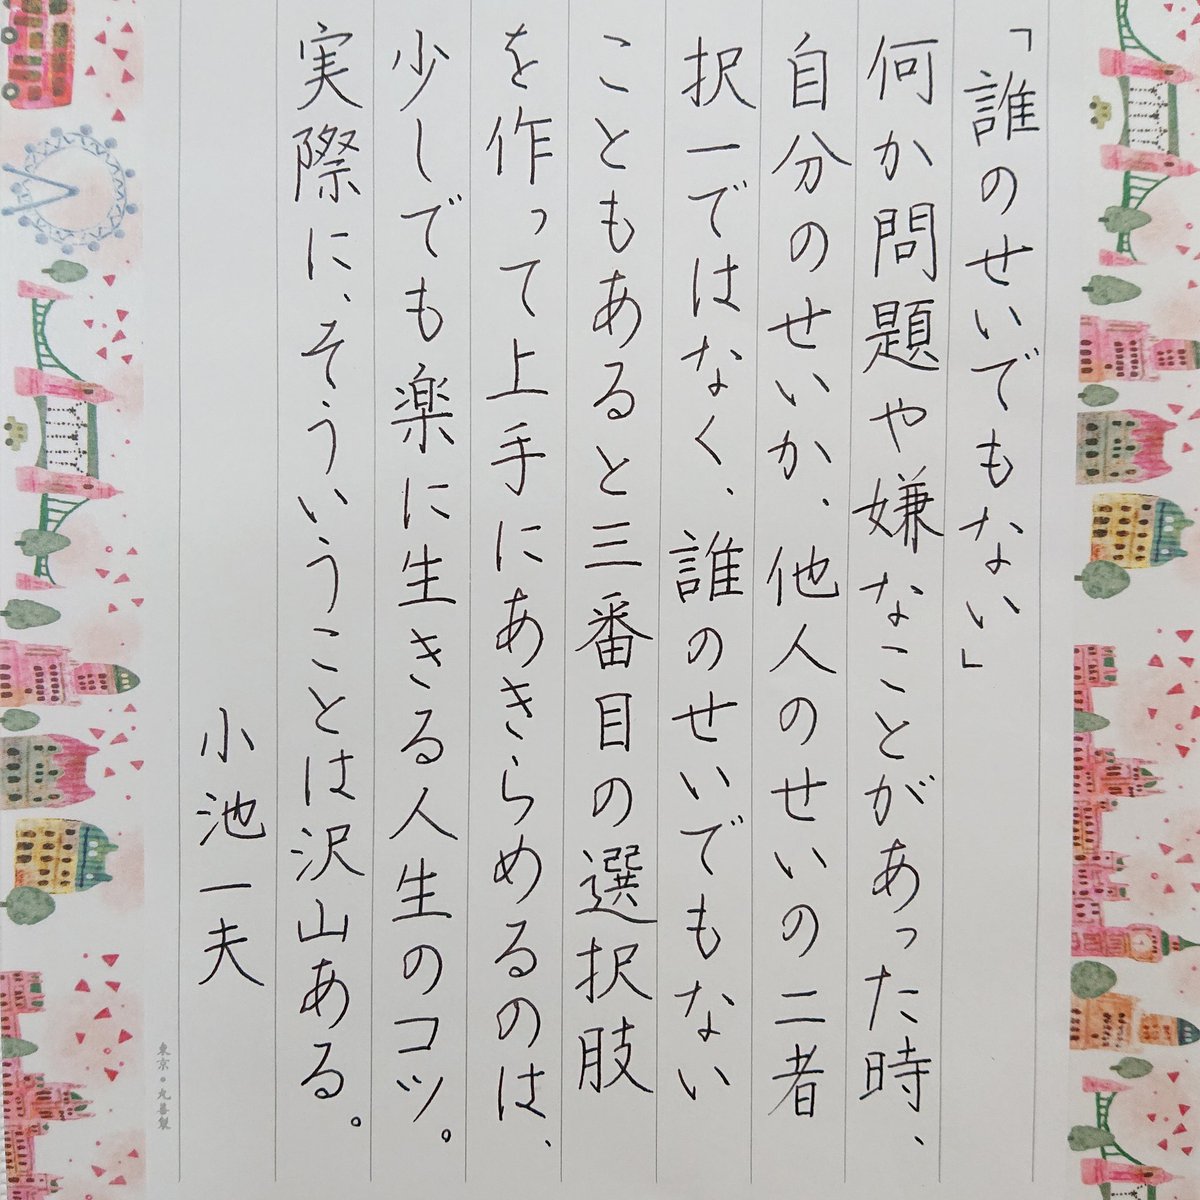 「誰のせいでもない」
何か問題や嫌なことがあった時、
自分のせいか、他人のせいの二者
択一ではなく、誰のせいでもない
こともあると三番目の選択肢
を作って上手にあきらめるのは、
少しでも楽に生きる人生のコツ。
実際に、そういうことは沢山ある。
小池一夫
東京・丸善製